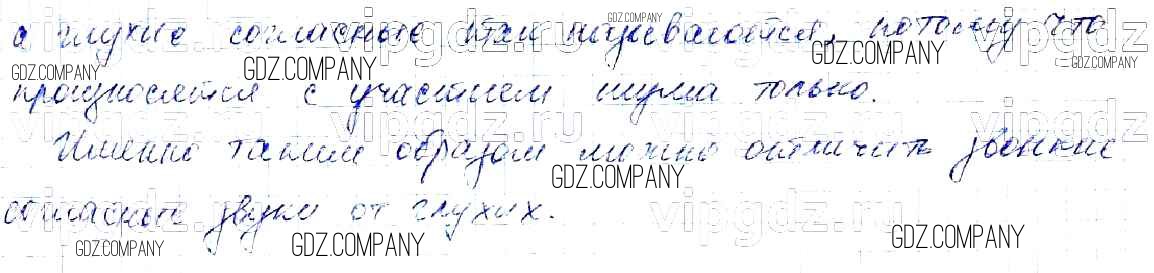 а глухие согласные так называются, потому что
произносятся с участием шума только.
Именно таким образом можно отличить звонкие
согласные звуки от глухих.
GDZ.COMPANY
GDZ.COMPANY
GDZ.COMPANY
GDZ.COMPANY
GDZ.COMPANY
GDZ.COMPANY
GDZ.COMPANY
GDZ.COMPANY
vipgdz.ru
vipgdz.ru
vipgdz.ru